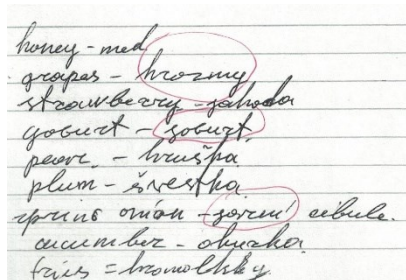 honey - med
grapes - hrozmy
strawberry - jahoda
yoburt - joburt
pear - hruška
plum - švestka
spring onion - jarní cibule.
cucumber - okurka
fries = hranolky